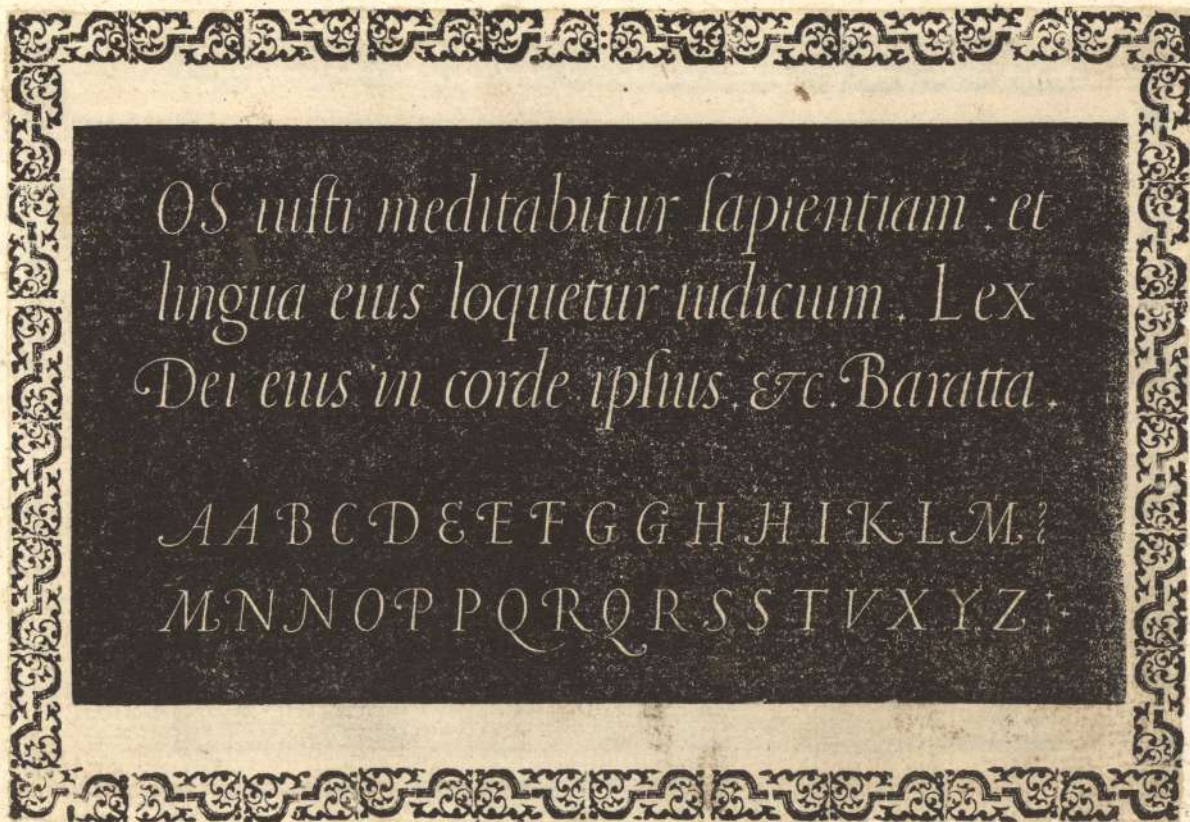 OS iuſti meditabitur ſapientiam : et
lingua eius loquetur iudicium. Lex
Dei eius in corde ipſius. &c. Baratta.
A A B C D E E F G G H H I K L M.
M N N O P P Q R Q R S S T V X Y Z